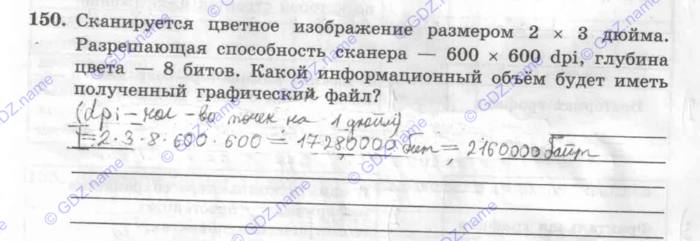 150. Сканируется цветное изображение размером 2 × 3 дюйма.
Разрешающая способность сканера — 600 × 600 dpi, глубина
цвета — 8 битов. Какой информационный объём будет иметь
полученный графический файл?
(dpi – кол-во точек на 1 дюйм)
I=2·3·8·600·600 = 17280000 бит = 2160000 байт
© GDZ.name